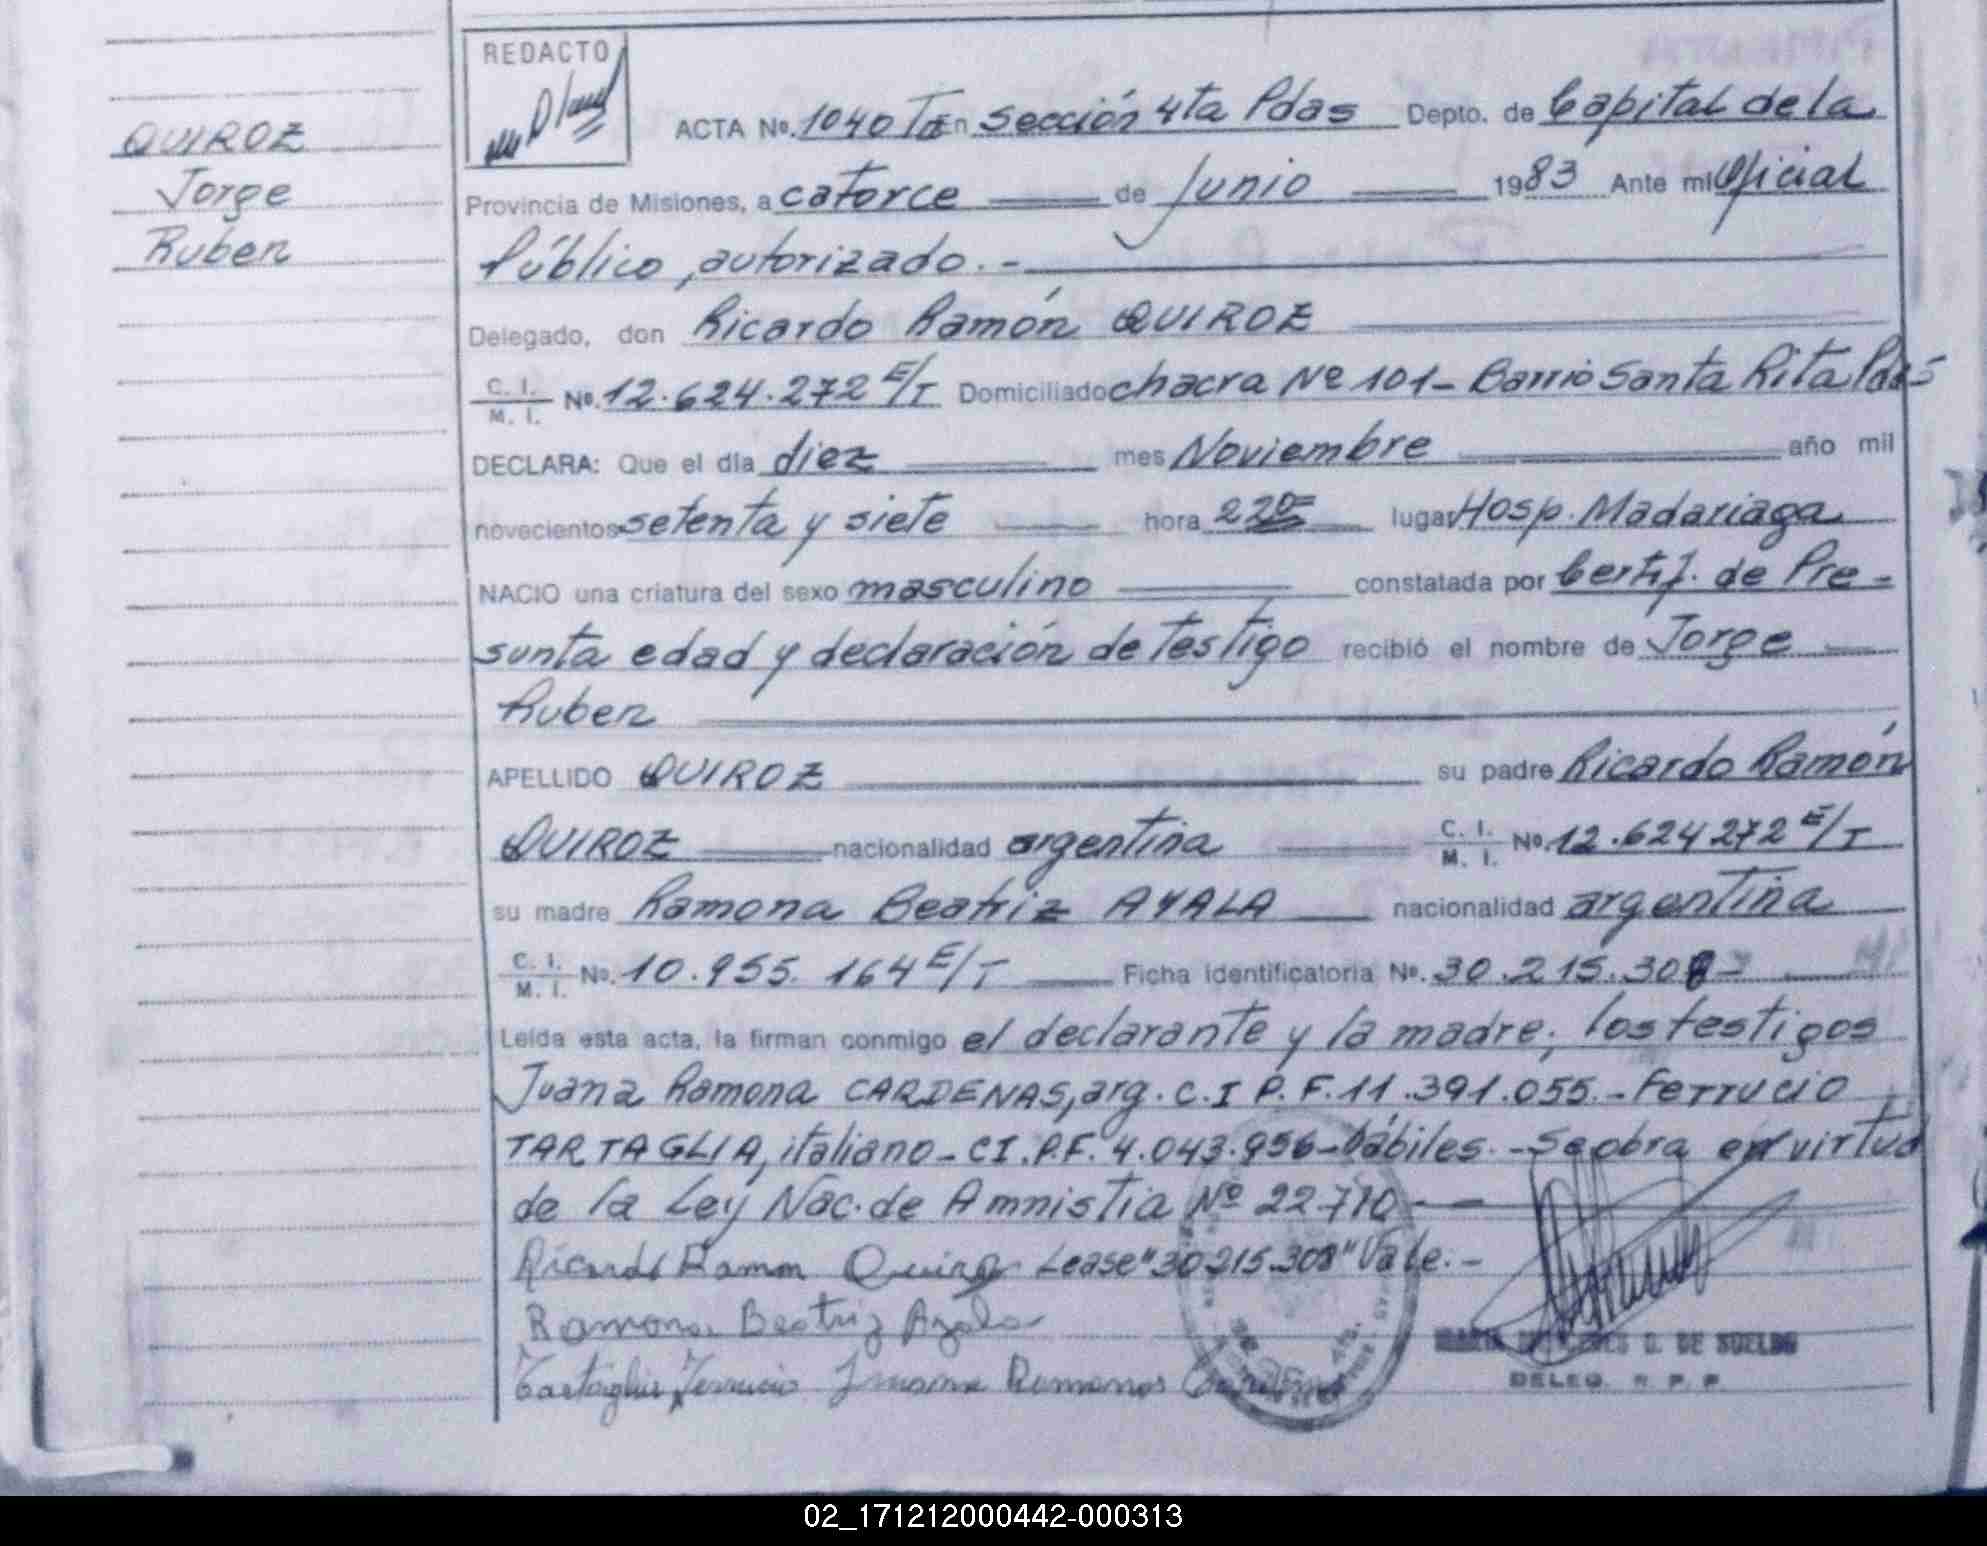 QUIROZ
Jorge
Ruben
REDACTO
ACTA No. 1040 T En Sección 4ta Pdas Depto. de Capital de la
Provincia de Misiones, a catorce de Junio 1983 Ante mi Oficial
Público, autorizado.-
Delegado, don Ricardo Ramón QUIROZ
C. I. M. I. No. 12.624.272 E/T Domiciliado chacra Nº 101- Barrio Santa Rita Pdas
DECLARA: Que el dia diez mes Noviembre año mil
novecientos setenta y siete hora lugar Hosp. Madariaga
NACIO una criatura del sexo masculino constatada por Certif. de Pre-
sunta edad y declaración de Testigo recibió el nombre de Jorge
Ruben
APELLIDO QUIROZ su padre Ricardo Ramón
QUIROZ nacionalidad argentina C. I. M. I. No. 12.624272 E/T
su madre Ramona Beatriz AYALA nacionalidad argentina
C. I. M. I. No. 10.955.164 E/T Ficha identificatoria No. 30.215.308-
Leida esta acta, la firman conmigo el declarante y la madre; los testigos
Juana Ramona CARDENAS, arg. C.I P.F. 11.391.055.- Ferrucio
TARTAGLIA, italiano- CI. P.F. 4.043.956- hábiles.- Se obra en virtud
de la Ley Nac. de Amnistia Nº 22.710 - -
Ricardo Ramon Quiroz Lease "30215.308" Vale.-
Ramona Beatriz Ayala
Tartaglia Ferrucio Juana Ramona
DE SUELDO
DELEG. R. P. P.
02_171212000442-000313